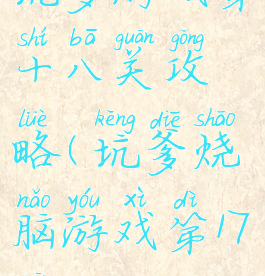 shí bā guān gōng
十八关攻
lüè kēng diē shāo
略(坑爹烧
nǎo yóu xì dì
脑游戏第17